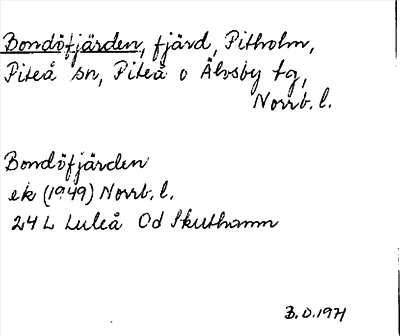 Bondöfjärden, fjärd, Pitholm,
Piteå sn, Piteå o Älvsby tg,
Norrb. l.
Bondöfjärden
ek (1949) Norrb. l.
24 L Luleå Od Skuthamn
B.D. 1971